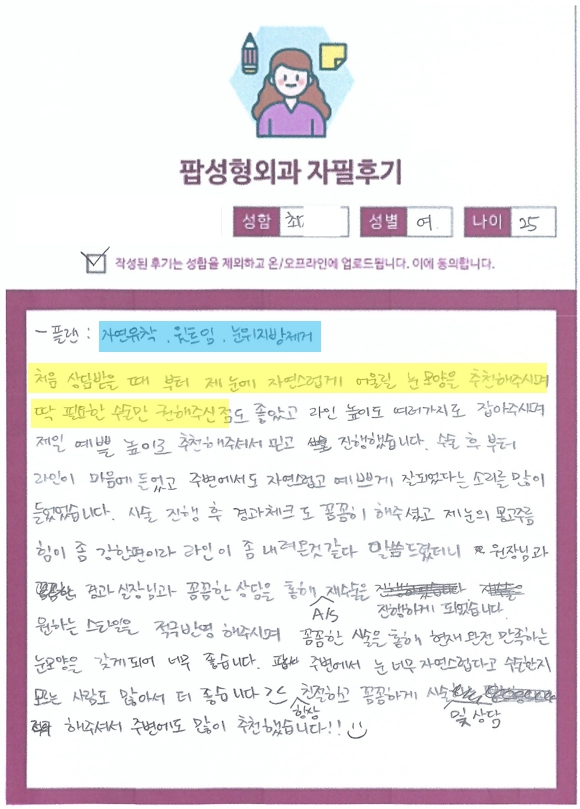 팝성형외과 자필후기
성함 최 성별 여. 나이 25
작성된 후기는 성함을 제외하고 온/오프라인에 업로드됩니다. 이에 동의합니다.
- 플랜 : 자연유착 . 윗트임 . 눈위지방제거
처음 상담받을 때 부터 제 눈에 자연스럽게 어울릴 눈모양을 추천해주시며
딱 필요한 수술만 권해주신 점도 좋았고 라인 높이도 여러가지로 잡아주시며
제일 예쁠 높이로 추천해주셔서 믿고 진행했습니다. 수술 후 부터
라인이 마음에 들었고 주변에서도 자연스럽고 예쁘게 잘되었다는 소리를 많이
들었었습니다. 시술 진행 후 경과체크도 꼼꼼히 해주셨고 제눈의 몽고주름
힘이 좀 강한편이라 라인이 좀 내려온것같다 말씀드렸더니 원장님과
경과 실장님과 꼼꼼한 상담을 통해 A/S 재수술을 진행하게 되었습니다.
원하는 스타일을 적극반영 해주시며 꼼꼼한 시술을 통해 현재 완전 만족하는
눈모양을 갖게되어 너무 좋습니다. 주변에서 눈 너무 자연스럽다고 수술한지
모르는 사람도 많아서 더 좋습니다 항상 친절하고 꼼꼼하게 시술 및 상담
해주셔서 주변에도 많이 추천했습니다!!